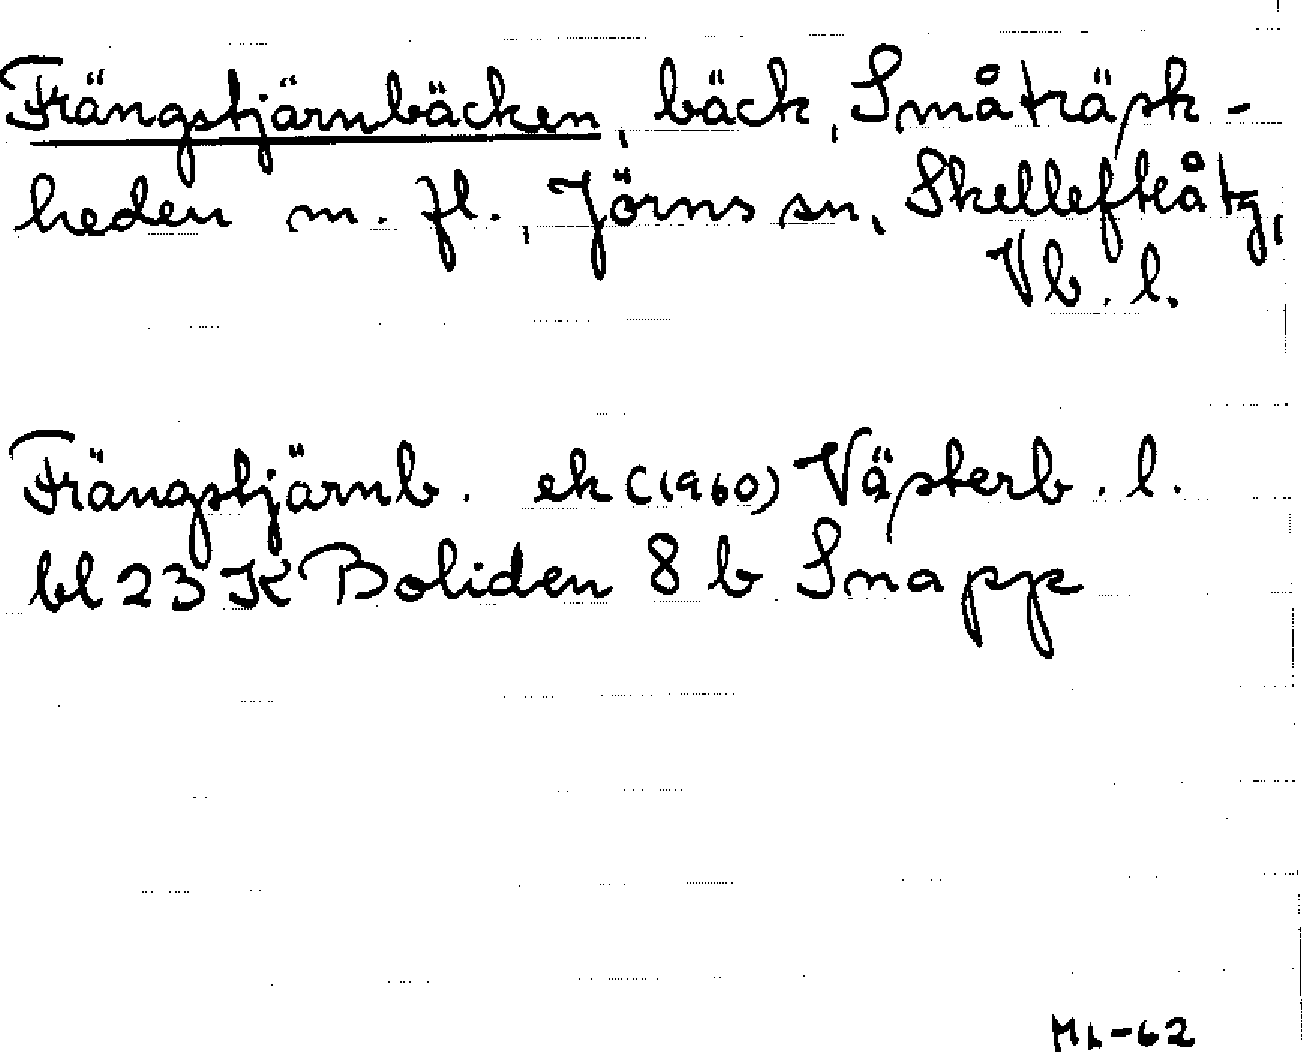 Frängstjärnbäcken, bäck, Småträsk-
heden m. fl., Jörns sn, Skellefteå tg,
Vb. l.
Frängstjärnb. ek (1960) Västerb. l.
bl 23 K Boliden 8 b Snapp